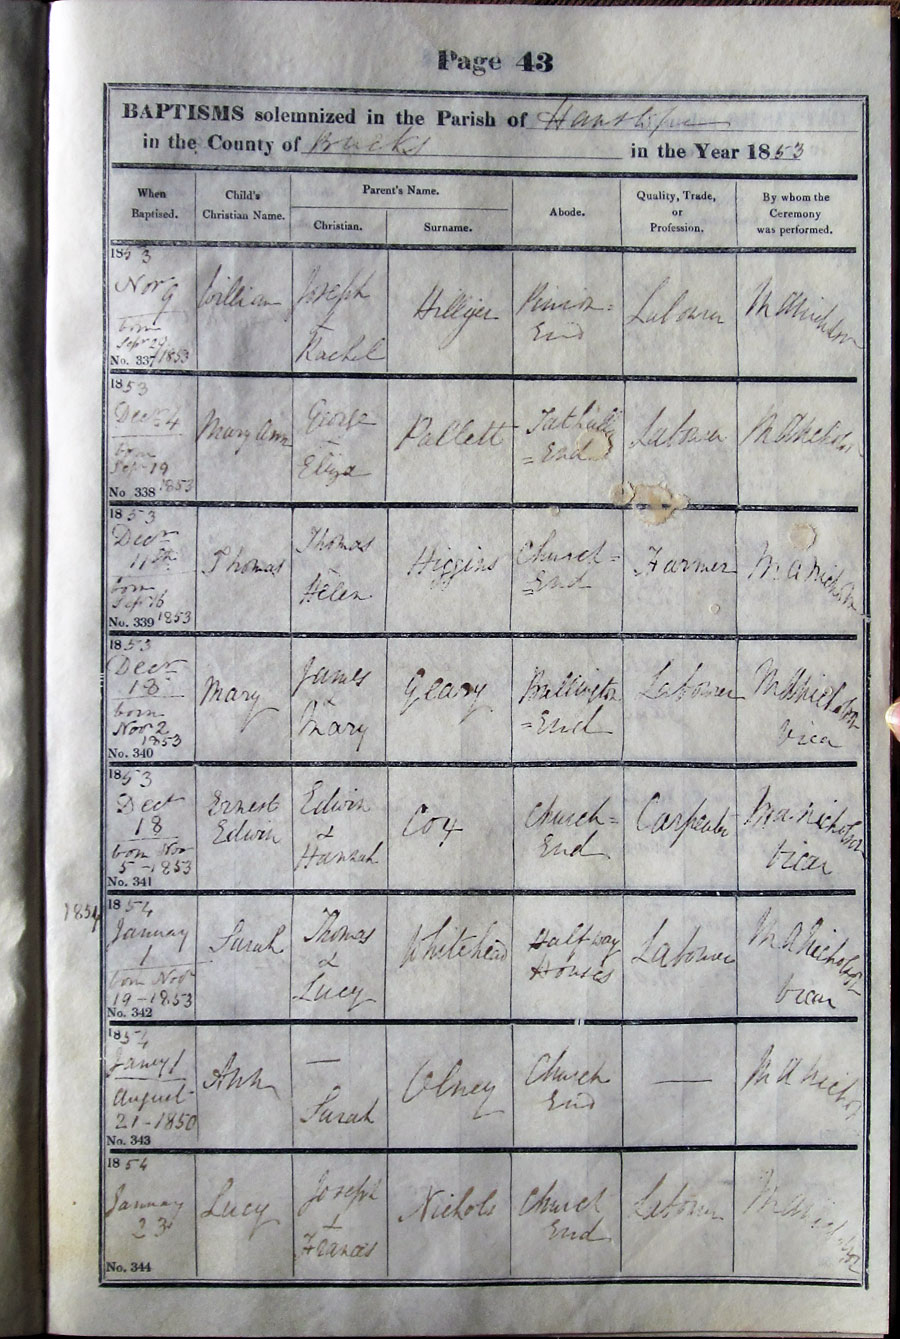 Page 43
BAPTISMS solemnized in the Parish of Hanslope
in the County of Bucks in the Year 1853
When Baptised.
Child's Christian Name.
Parent's Name.
Christian.
Surname.
Abode.
Quality, Trade, or Profession.
By whom the Ceremony was performed.
1853
Novr 9
born
Sepr 29 1853
No. 337
William
Joseph
&
Rachel
Hillyer
Pinion-
End
Labourer
M A Nicholson
1853
Decr 4
born
Sepr 19
1853
No 338
Mary Ann
George
&
Eliza
Pallett
Tathall
=End
Labourer
M A Nicholson
1853
Decr
11th
born
Sepr 16
1853
No. 339
Thomas
Thomas
&
Helen
Higgins
Church=
End
Farmer
M A Nicholson
1853
Decr
18
born
Novr 2
1853
No. 340
Mary
James
&
Mary
Geary
Bullington
=End
Labourer
M A Nicholson
Vicar
1853
Decr
18
born Nov
5-1853
No. 341
Ernest
Edwin
Edwin
&
Hannah
Cox
Church=
End
Carpenter
M A Nicholson
Vicar
1854
1854
January
1
born Novr
19-1853
No. 342
Sarah
Thomas
&
Lucy
Whitehead
Halfway
Houses
Labourer
M A Nicholson
Vicar
1854
Jany 1
August
21-1850
No. 343
Ann
—
Sarah
Olney
Church
End
—
M A Nichol
1854
January
23
No. 344
Lucy
Joseph
&
Frances
Nichols
Church
End
Labourer
M A Nicholson